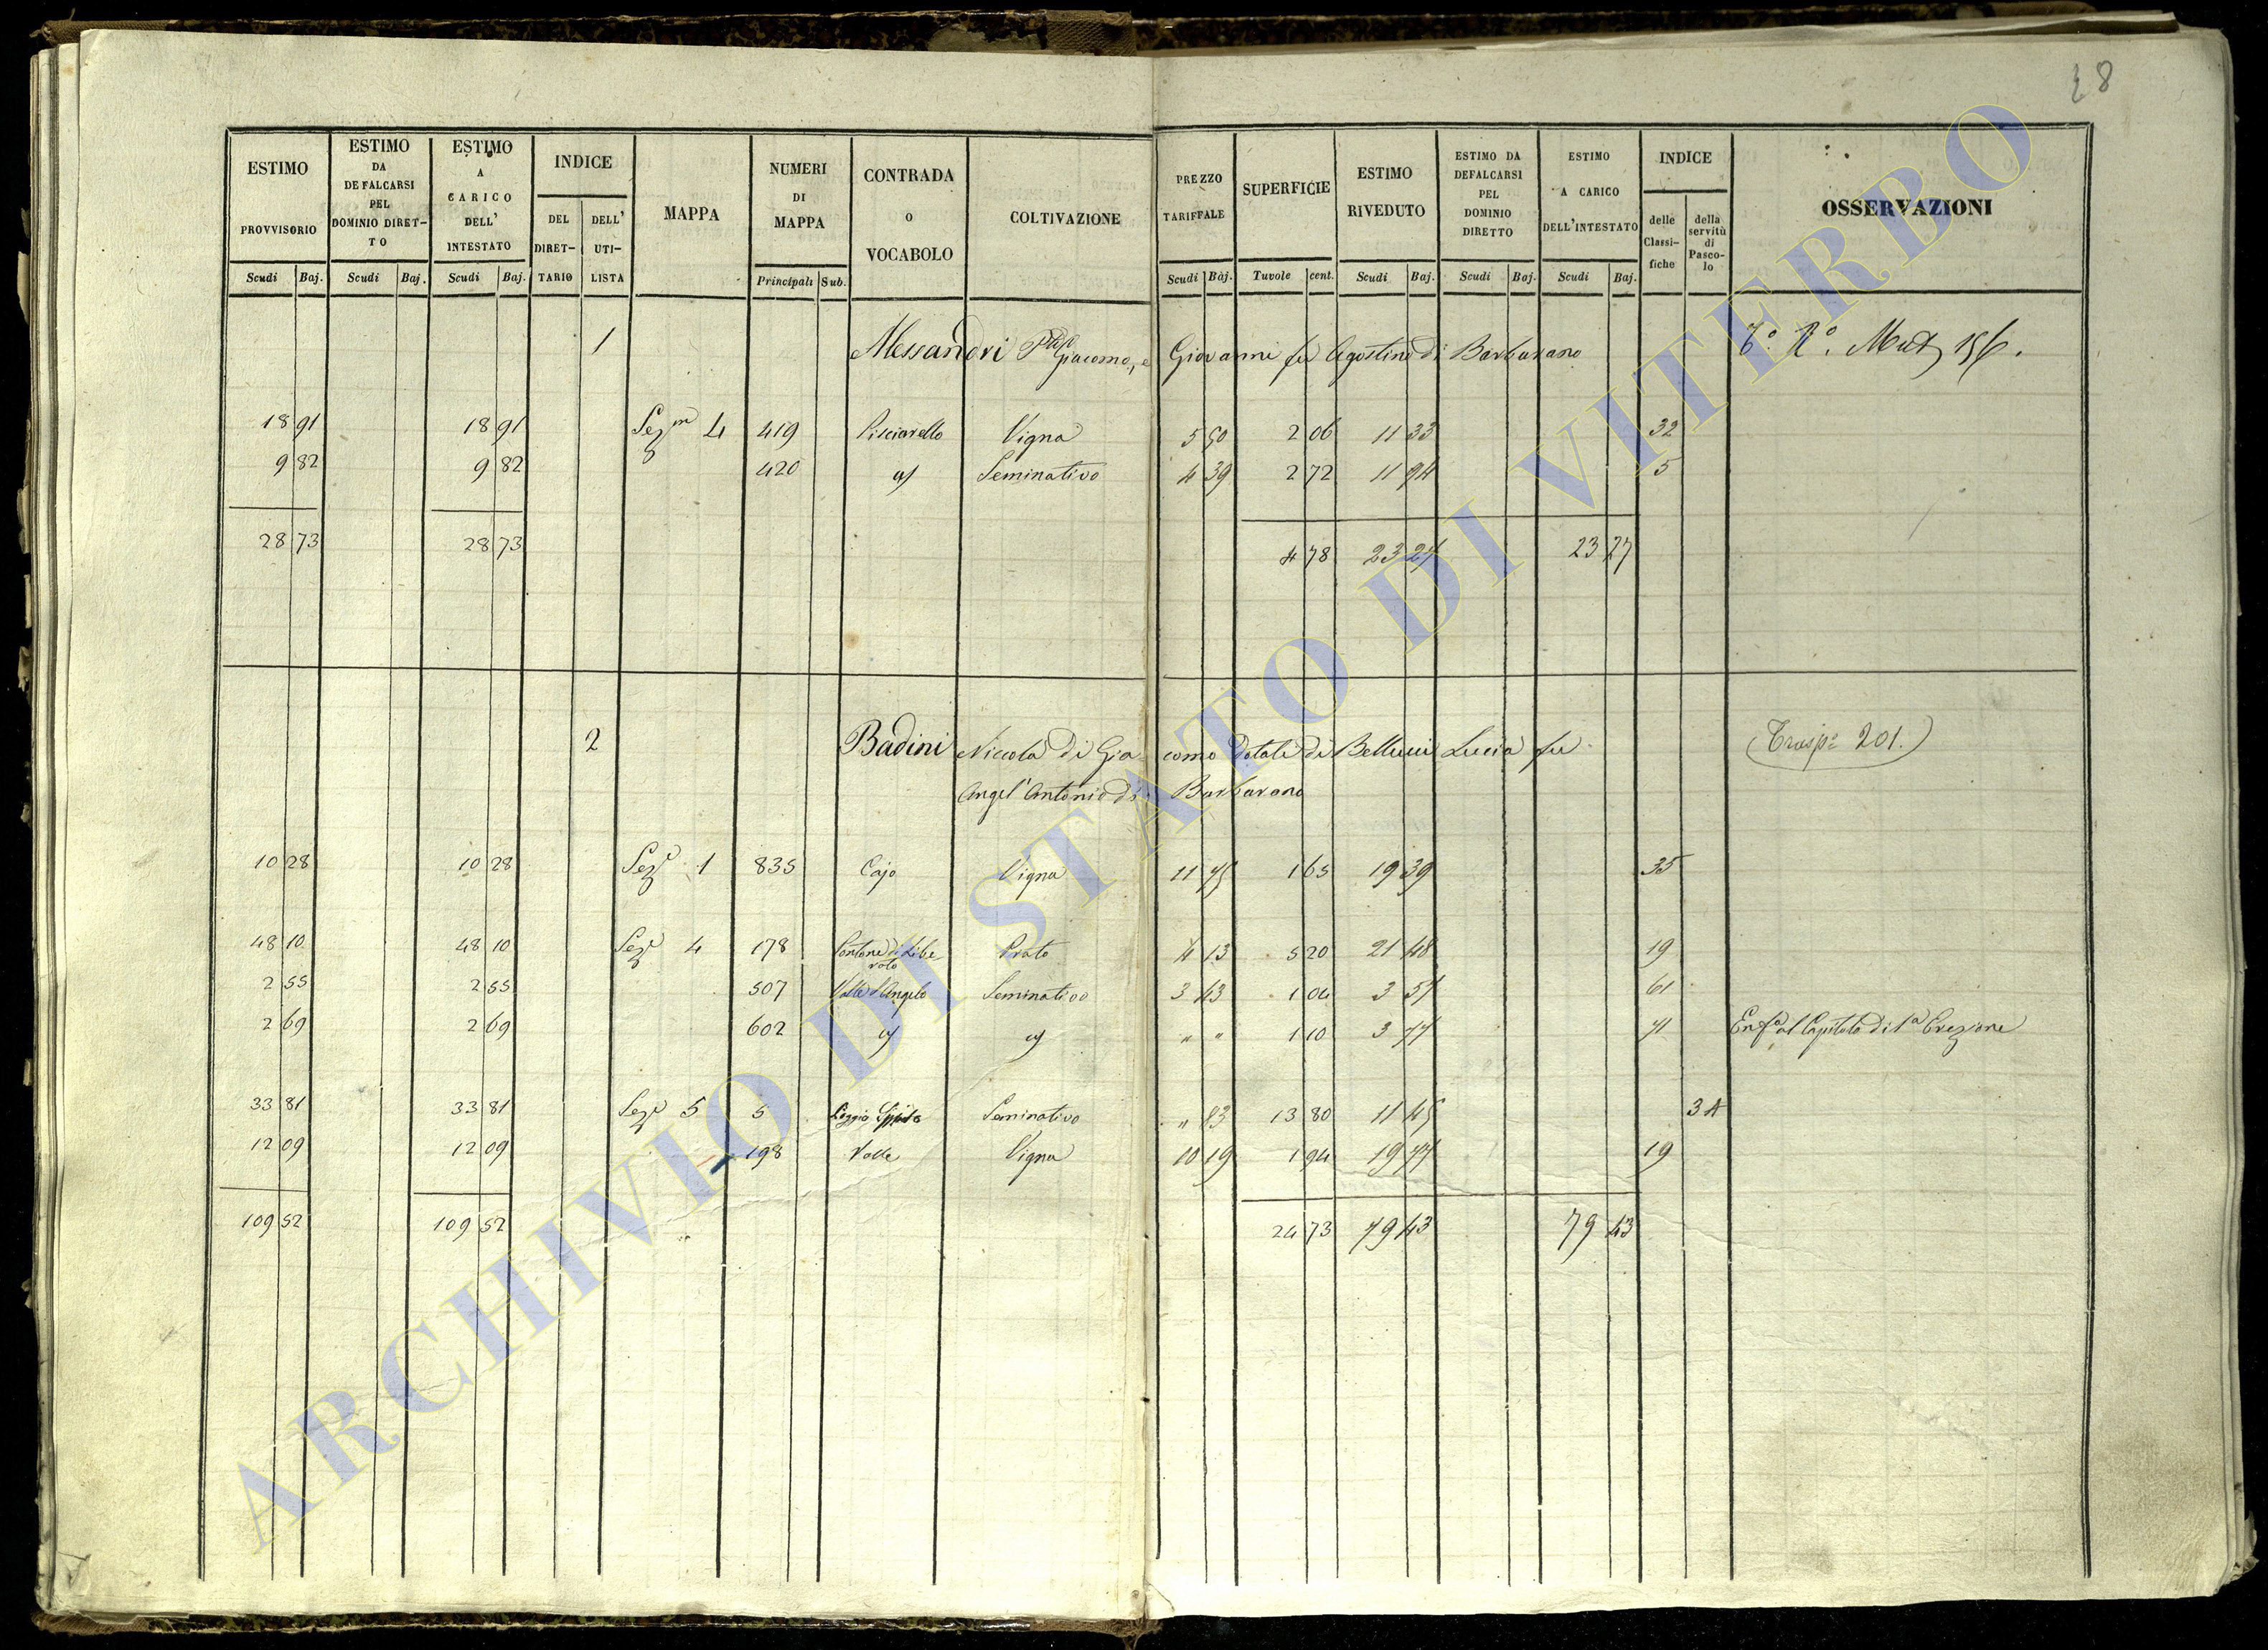 28
ESTIMO PROVVISORIO Scudi Baj.
ESTIMO DA DEFALCARSI PEL DOMINIO DIRET-TO Scudi Baj.
ESTIMO A CARICO DELL' INTESTATO Scudi Baj.
INDICE DEL DIRET-TARIO DELL' UTI-LISTA
MAPPA
NUMERI DI MAPPA Principali Sub.
CONTRADA O VOCABOLO
COLTIVAZIONE
PREZZO TARIFFALE Scudi Baj.
SUPERFICIE Tuvole cent.
ESTIMO RIVEDUTO Scudi Baj.
ESTIMO DA DEFALCARSI PEL DOMINIO DIRETTO Scudi Baj.
ESTIMO A CARICO DELL'INTESTATO Scudi Baj.
INDICE delle Classi-fiche della servitù di Pasco-lo
OSSERVAZIONI
1 Alessandri Giacomo, e Giovanni fu Agostino di Barbarano 156.
18 91 18 91 4 419 Pisciarello Vigna 5 50 2 06 11 33 32
9 82 9 82 420 Seminativo 4 39 2 72 11 94 5
28 73 28 73 4 78 23 27 23 27
2 Badini Niccola di Gia como dotale di Bellucci Lucia fu (Trasp. 201.)
Angel'Antonio di Barbarano
10 28 10 28 Sez.e 1 835 Cajo Vigna 11 75 1 65 19 39 35
48 10 48 10 Sez.e 4 178 Pontone di Libe-rato Prato 4 13 5 20 21 48 19
2 55 2 55 507 Valle d'Angelo Seminativo 3 43 1 04 3 57 61
2 69 2 69 602 " " 1 10 3 77 71 Enf.a al Capitolo di 1a Erezione
33 81 33 81 Sez.e 5 5 Poggio Seminativo " 83 13 80 11 45 34
12 09 12 09 198 Valle Vigna 10 19 1 94 19 77 19
109 52 109 52 24 73 79 43 79 43
ARCHIVIO DI STATO DI VITERBO